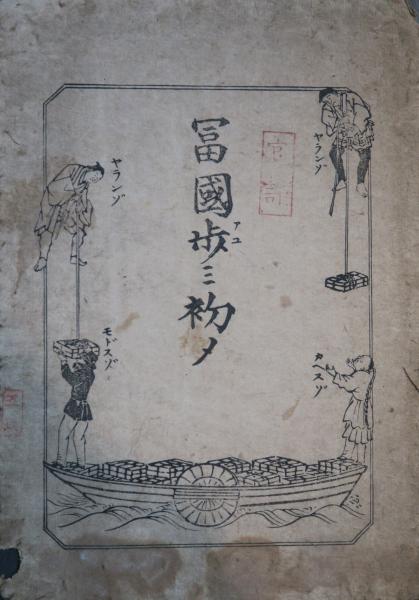 ヤランゾ
カヘスゾ
冨國歩ミ初メ
アユ
ヤランゾ
モドスゾ